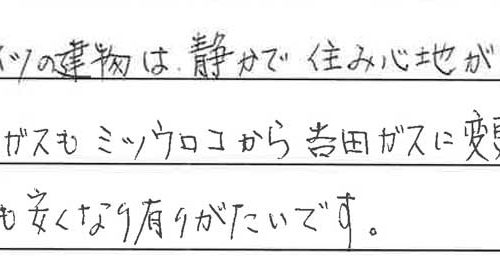 イツの建物は、静かで住み心地が
ガスもミツウロコから吉田ガスに変更
も安くなり有りがたいです。